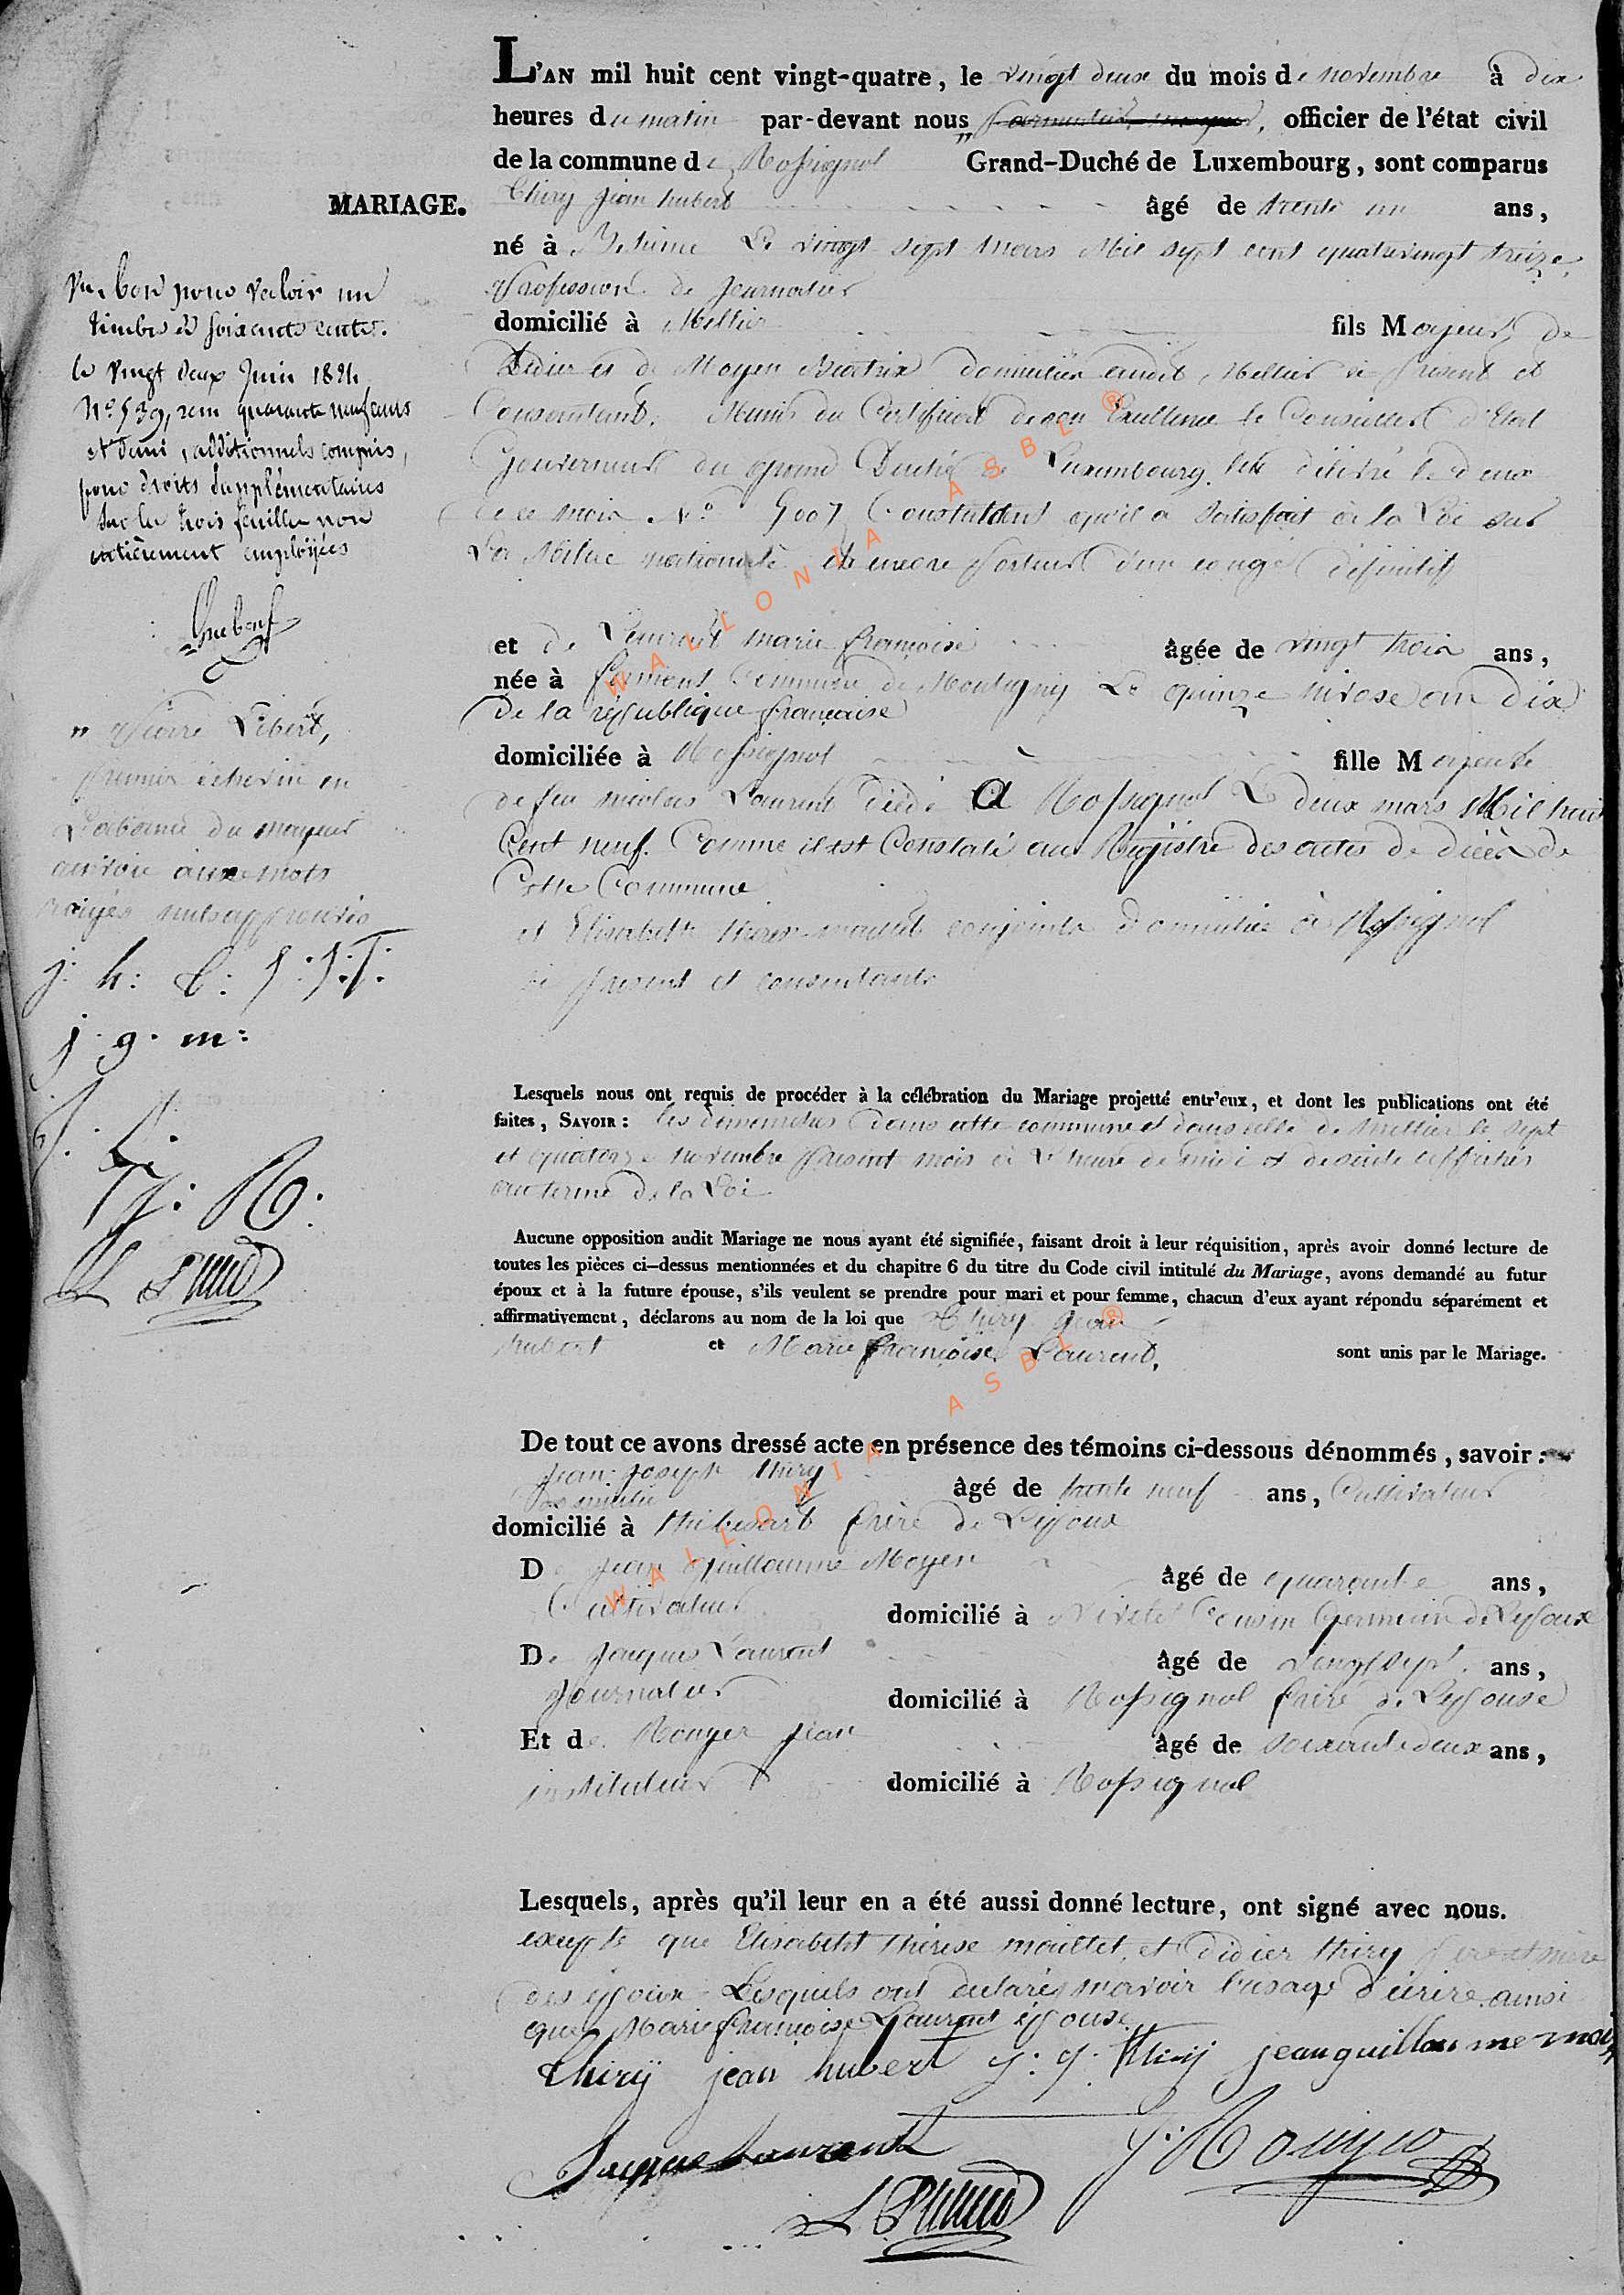 L'AN mil huit cent vingt-quatre, le vingt deux du mois de novembre à dix
heures du matin par-devant nous officier de l'état civil
de la commune de Rossignol Grand-Duché de Luxembourg, sont comparus
MARIAGE.
Thiry jean hubert âgé de trente un ans,
né à Le vingt sept mars Mil sept cent quatrevingt treize,
Profession de Journalier
domicilié à Mellier fils Majeur, de
Didier et de Moyen Beatrix domiciliés audit Mellier ci présent et
Consentant. Munis du Certificat de son Excellence le Conseiller d'Etat
Gouverneur du grand Duché de Luxembourg délivré le deux
de ce mois N.o 9007 Constatant qu'il a satisfait à la Loi sur
La Milice nationale et encore porteur d'un congé définitif
et de Laurent marie françoise âgée de vingt trois ans,
née à Commune de Montigny Le quinze nivose an dix
De la république française
domiciliée à Rossignol fille Majeure
de feu nicolas Laurent décédé A Rossignol Le deux mars Mil huit
Cent neuf. Comme il est Constaté au Registre des actes de décès de
Cette Commune
et Elisabeth therese maillet conjointe domiciliée à Rossignol
ci présent et consentante
Vu, bon pour valoir un
timbre de soixante cents.
le vingt deux Juin 1824
N.o 539, reçu quarante neuf cents
et demi, additionnels compris,
pour droits supplémentaires
sur les trois feuilles non
entièrement employées
" Pierre Libert,
premier échevin en
L'absence du mayeur
autorisé aux mots
rayés nuls approuvés
j. h: t: j: j: T:
j. g. m:
j: L:
j: R:
Lesquels nous ont requis de procéder à la célébration du Mariage projetté entr'eux, et dont les publications ont été
faites, SAVOIR: les dimanches dans cette commune et dans celle de mellier le sept
et quatorze novembre présent mois à L'heure de midi et de suite affichés
au terme de la Loi
Aucune opposition audit Mariage ne nous ayant été signifiée, faisant droit à leur réquisition, après avoir donné lecture de
toutes les pièces ci-dessus mentionnées et du chapitre 6 du titre du Code civil intitulé du Mariage, avons demandé au futur
époux et à la future épouse, s'ils veulent se prendre pour mari et pour femme, chacun d'eux ayant répondu séparément et
affirmativement, déclarons au nom de la loi que Thiry jean
hubert et Marie françoise Laurent, sont unis par le Mariage.
De tout ce avons dressé acte en présence des témoins ci-dessous dénommés, savoir:
Jean Joseph thiry âgé de trente neuf ans, Cultivateur
domicilié
domicilié à thibessart frère de L'époux
De jean guillaume Moyen âgé de quarante ans,
Cultivateur domicilié à Cousin Germain de L'époux
De jacques Laurent âgé de vingt sept ans,
Journalier domicilié à Rossignol frère de L'épouse
Et de Rouyer jean âgé de soixante deux ans,
instituteur domicilié à Rossignol
Lesquels, après qu'il leur en a été aussi donné lecture, ont signé avec nous.
excepté que Elisabeth thérèse maillet, et didier thiry père et mère
des époux Lesquels ont déclarés n'avoir l'usage d'écrire ainsi
que Marie françoise Laurent épouse.
thirÿ jean hubert j: j: thirÿ jean guillaume moÿ
Jacque Laurent J: Rouyer
WALLONIA ASBL ®
WALLONIA ASBL ®